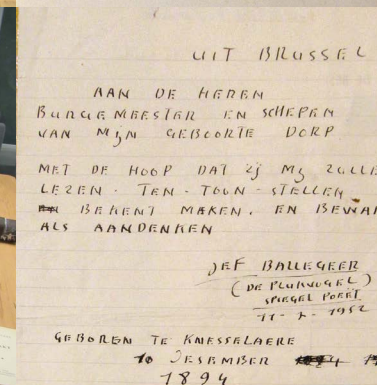 UIT BRUSSEL
AAN DE HEREN
BURGEMEESTER EN SCHEPEN
VAN MIJN GEBOORTE DORP
MET DE HOOP DAT ZJ MY ZULLE
LEZEN - TEN - TOON - STELLEN
BEKENT MAKEN. EN BEWA
ALS AANDENKEN
JEF BALLEGEER
(DE PLUKVOGEL)
SPIEGEL POEET
11-7-1952
GEBOREN TE KNESSELAERE
10 DESEMBER
1894